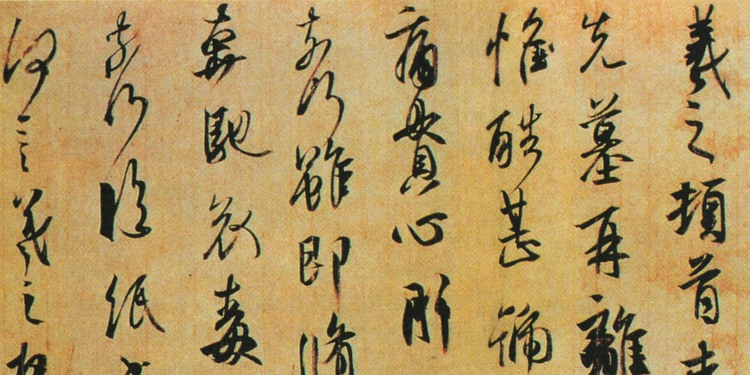 羲之頓首喪
先墓再離
惟酷甚號
痛貫心肝
奈何雖即脩
奔馳哀毒
奈何臨紙
何言羲之頓